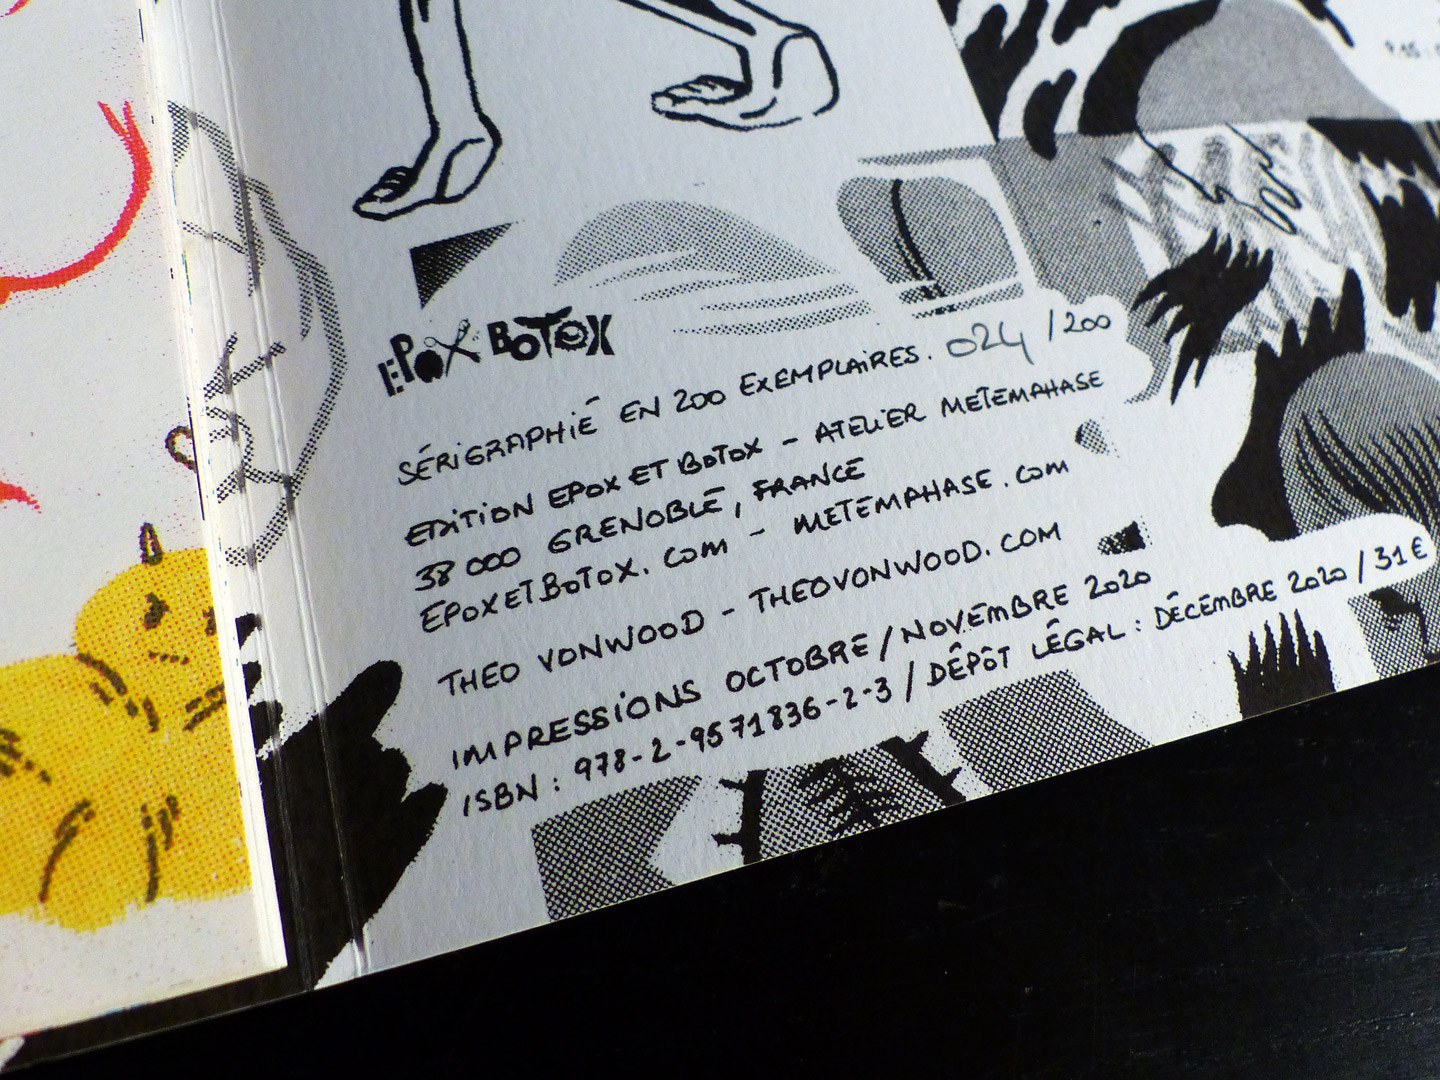 EPOX BOTOX
SÉRIGRAPHIÉ EN 200 EXEMPLAIRES. 024 /200
EDITION EPOX ET BOTOX - ATELIER METEMPHASE
38 000 GRENOBLE, FRANCE
EPOXETBOTOX.COM - METEMPHASE.COM
THEO VONWOOD - THEOVONWOOD.COM
IMPRESSIONS OCTOBRE/NOVEMBRE 2020
ISBN : 978-2-9571836-2-3 / DÉPÔT LÉGAL : DÉCEMBRE 2020 / 31€